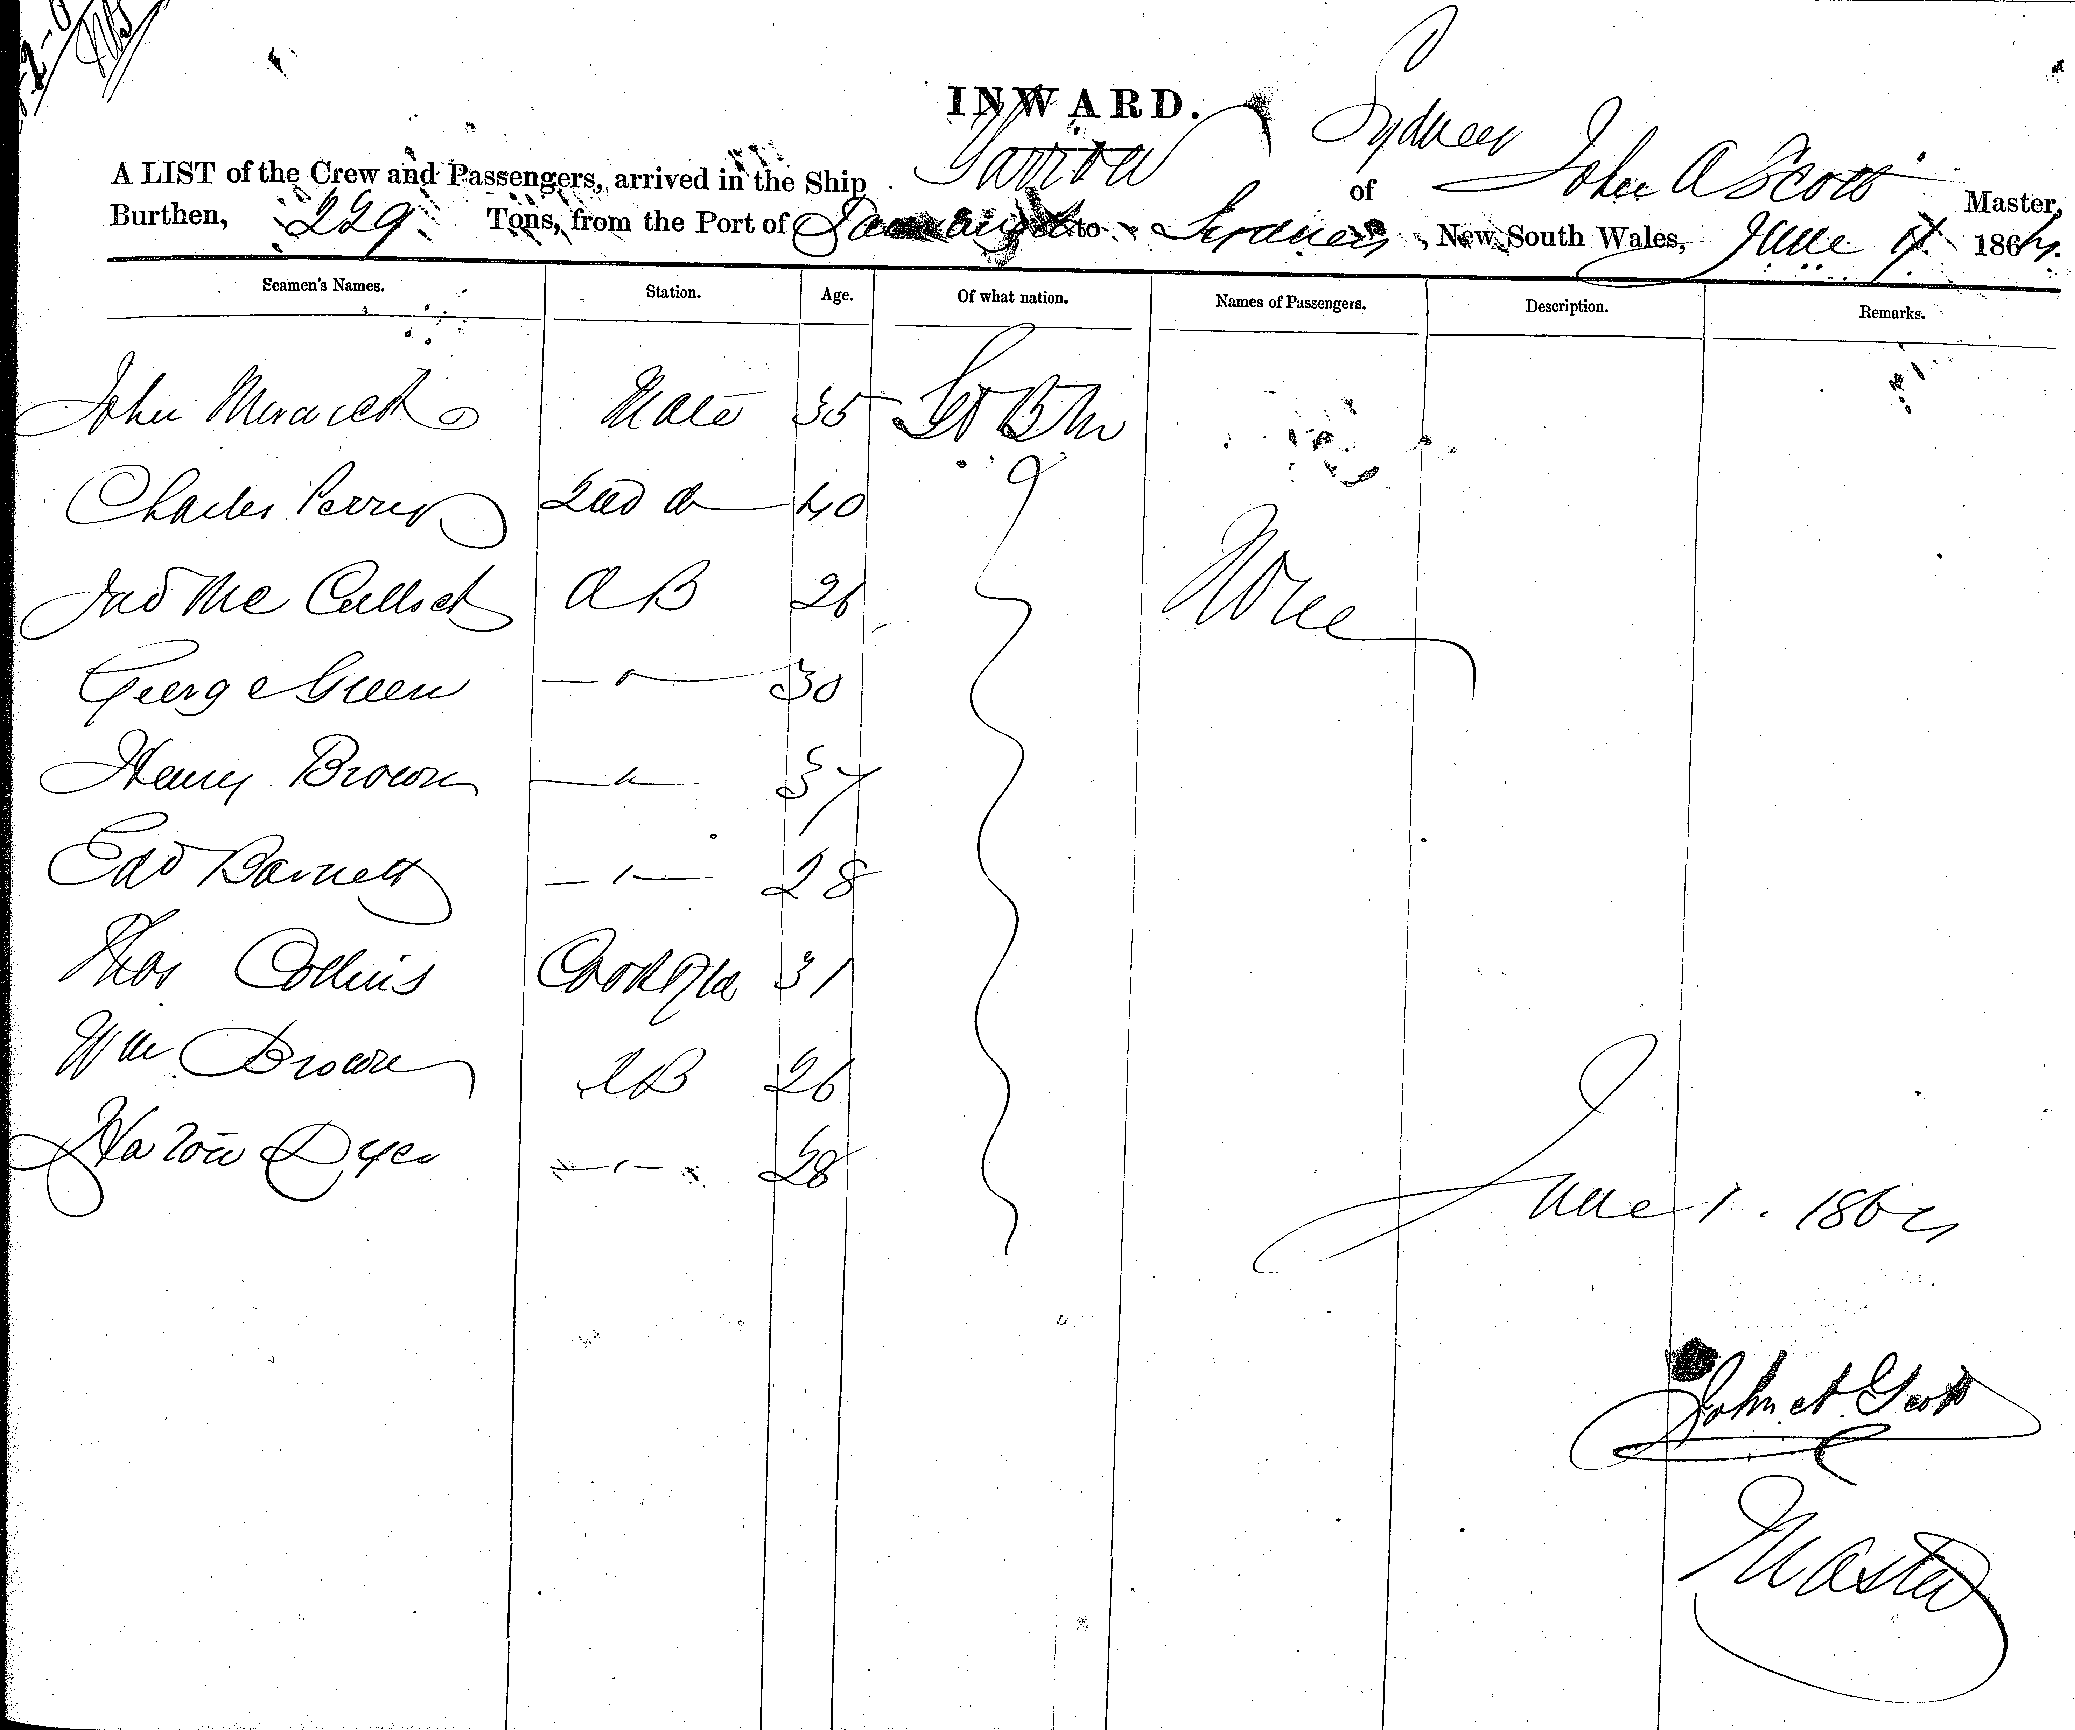 INWARD.
Sydney
A LIST of the Crew and Passengers, arrived in the Ship Yarrow of John A Scott Master,
Burthen, 229 Tons, from the Port of to Sydney New South Wales, June 1864.
Seamen's Names. Station. Age. Of what nation. Names of Passengers. Description. Remarks.
John Mate 35 Gt Brn
Charles Perry 2nd do 40
Jno Mc Culloch A B 26 None
George Green 30
Henry Brown 37
Edd Barnett 28
Thos Collins Cook 31
Wm Brown AB 26
Dyer 28
June 1. 1864
John A Scott
Master